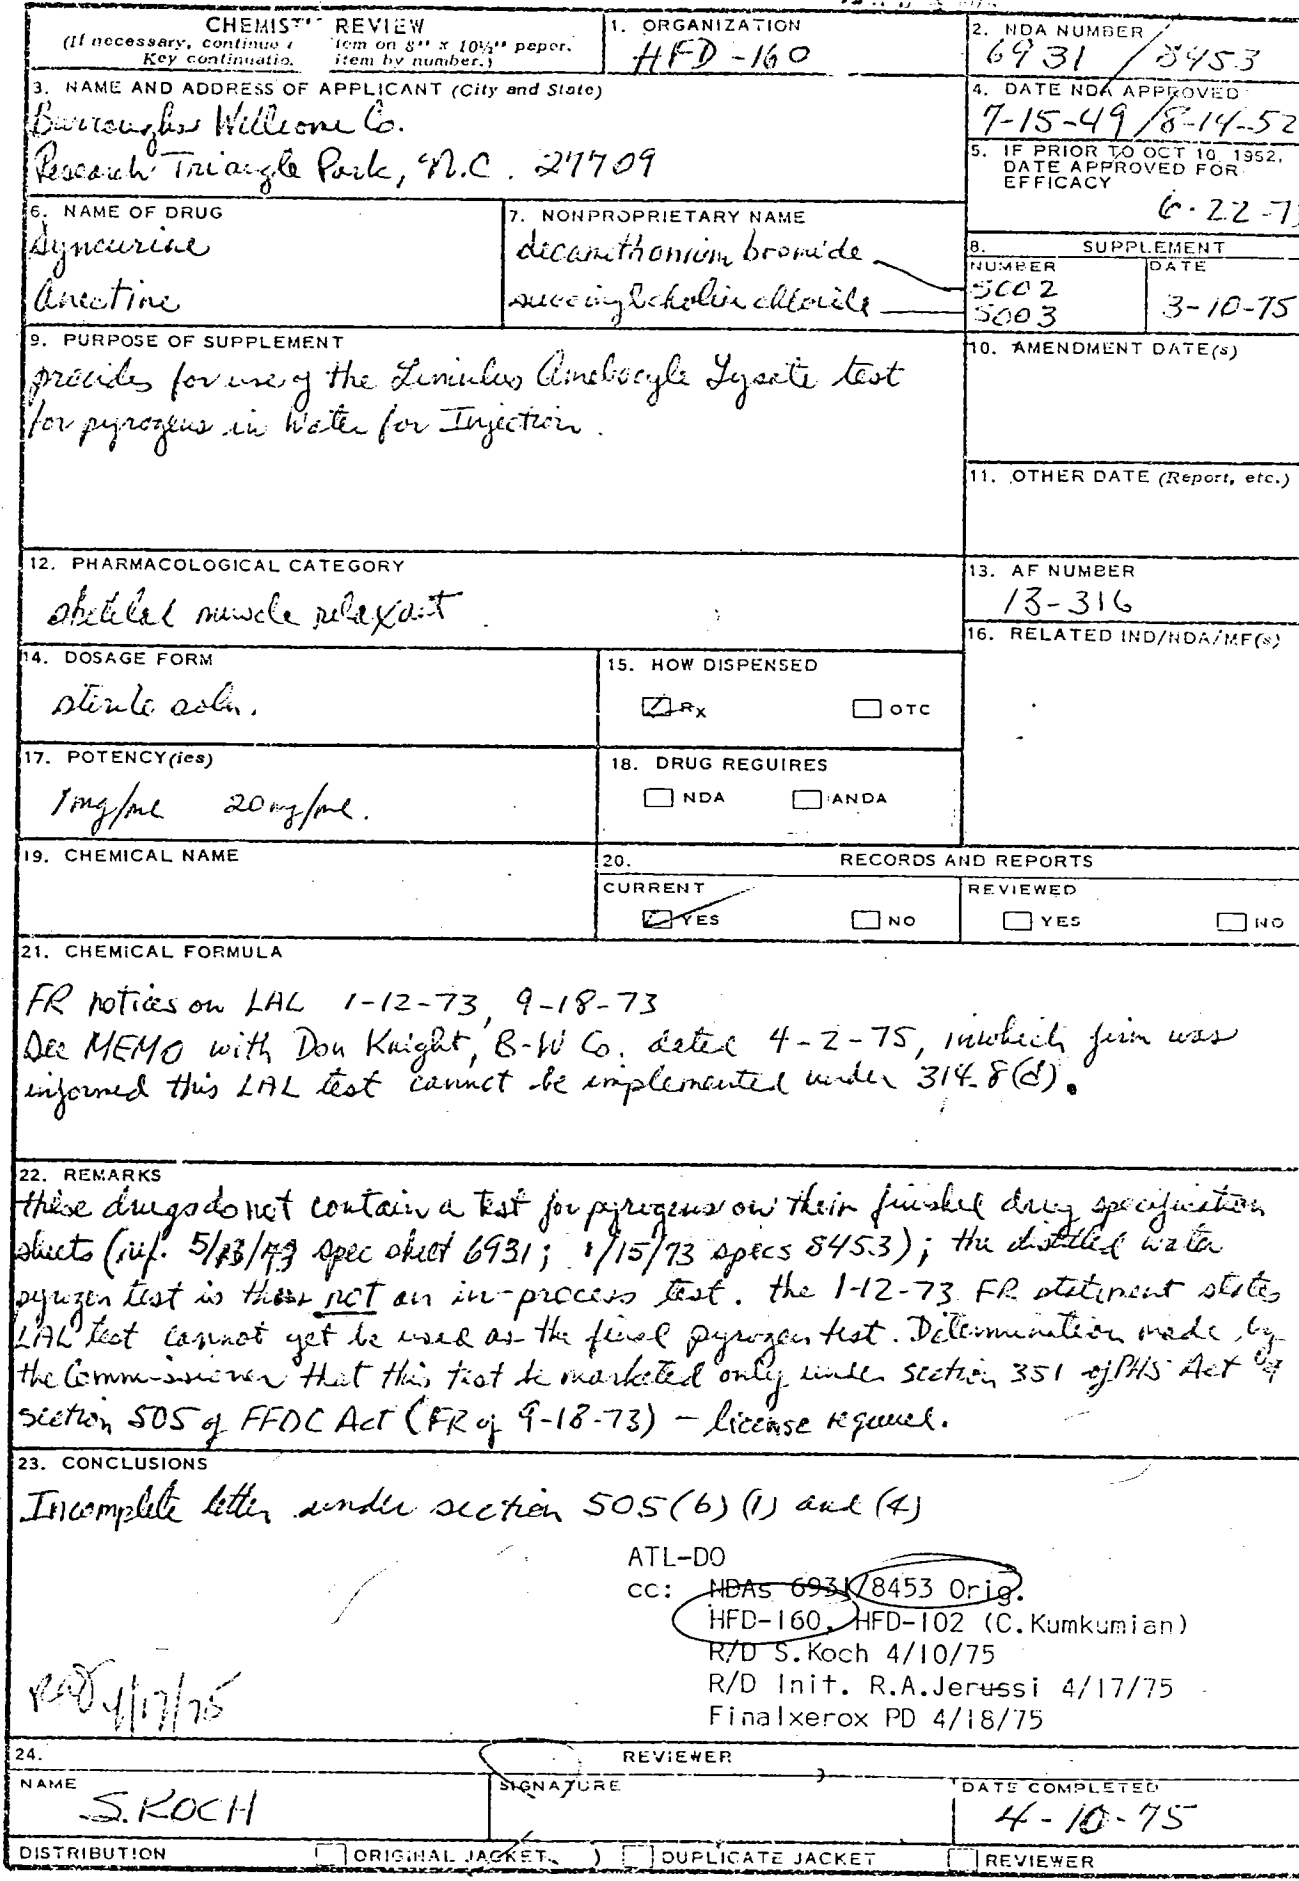 CHEMIST REVIEW
(If necessary, continue item on 8" x 10½" paper.
Key continuatio. item by number.)
1. ORGANIZATION
HFD-160
2. NDA NUMBER
6931 / 8453
3. NAME AND ADDRESS OF APPLICANT (City and State)
Burroughs Wellcome Co.
Research Triangle Park, N.C. 27709
4. DATE NDA APPROVED
7-15-49 / 8-14-52
5. IF PRIOR TO OCT 10, 1952,
DATE APPROVED FOR
EFFICACY
6-22-73
6. NAME OF DRUG
Syncurine
Anectine
7. NONPROPRIETARY NAME
decamethonium bromide
succinylcholine chloride
8. SUPPLEMENT
NUMBER DATE
S002
S003 3-10-75
9. PURPOSE OF SUPPLEMENT
provides for use of the Limulus Amebocyte Lysate test
for pyrogens in Water for Injection.
10. AMENDMENT DATE(s)
11. OTHER DATE (Report, etc.)
12. PHARMACOLOGICAL CATEGORY
skeletal muscle relaxant
13. AF NUMBER
13-316
14. DOSAGE FORM
sterile soln.
15. HOW DISPENSED
Rx OTC
16. RELATED IND/NDA/MF(s)
17. POTENCY(ies)
1mg/ml 20mg/ml.
18. DRUG REGUIRES
NDA ANDA
19. CHEMICAL NAME
20. RECORDS AND REPORTS
CURRENT REVIEWED
YES NO YES NO
21. CHEMICAL FORMULA
FR notices on LAL 1-12-73, 9-18-73
See MEMO with Don Knight, B-W Co. dated 4-2-75, in which firm was
informed this LAL test cannot be implemented under 314.8(d).
22. REMARKS
these drugs do not contain a test for pyrogens on their finished drug specification
sheets (ref. spec sheet 6931; 1/15/73 specs 8453); the distilled water
pyrogen test is thus not an in-process test. the 1-12-73 FR statement states
LAL test cannot yet be used as the final pyrogen test. Determination made by
the Commissioner that this test be marketed only under section 351 of PHS Act
section 505 of FFDC Act (FR of 9-18-73) - license required.
23. CONCLUSIONS
Incomplete letter under section 505(b)(1) and (4)
ATL-DO
cc: NDAs 6931/8453 Orig.
HFD-160, HFD-102 (C.Kumkumian)
R/D S.Koch 4/10/75
R/D Init. R.A.Jerussi 4/17/75
Finalxerox PD 4/18/75
4/17/75
24. REVIEWER
NAME SIGNATURE DATE COMPLETED
S. KOCH 4-10-75
DISTRIBUTION ORIGINAL JACKET DUPLICATE JACKET REVIEWER